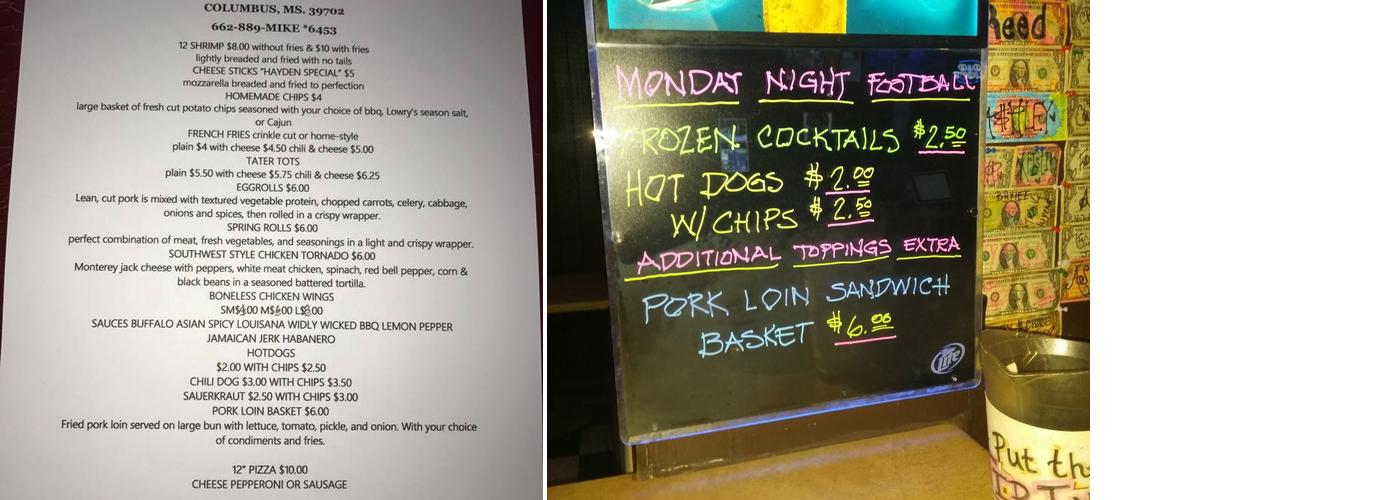 COLUMBUS, MS. 39702
662-889-MIKE *6453
12 SHRIMP $8.00 without fries & $10 with fries
lightly breaded and fried with no tails
CHEESE STICKS "HAYDEN SPECIAL" $5
mozzarella breaded and fried to perfection
HOMEMADE CHIPS $4
large basket of fresh cut potato chips seasoned with your choice of bbq, Lowry's season salt,
or Cajun
FRENCH FRIES crinkle cut or home-style
plain $4 with cheese $4.50 chili & cheese $5.00
TATER TOTS
plain $5.50 with cheese $5.75 chili & cheese $6.25
EGGROLLS $6.00
Lean, cut pork is mixed with textured vegetable protein, chopped carrots, celery, cabbage,
onions and spices, then rolled in a crispy wrapper.
SPRING ROLLS $6.00
perfect combination of meat, fresh vegetables, and seasonings in a light and crispy wrapper.
SOUTHWEST STYLE CHICKEN TORNADO $6.00
Monterey jack cheese with peppers, white meat chicken, spinach, red bell pepper, corn &
black beans in a seasoned battered tortilla.
BONELESS CHICKEN WINGS
SAUCES BUFFALO ASIAN SPICY LOUISANA WIDLY WICKED BBQ LEMON PEPPER
JAMAICAN JERK HABANERO
HOTDOGS
$2.00 WITH CHIPS $2.50
CHILI DOG $3.00 WITH CHIPS $3.50
SAUERKRAUT $2.50 WITH CHIPS $3.00
PORK LOIN BASKET $6.00
Fried pork loin served on large bun with lettuce, tomato, pickle, and onion. With your choice
of condiments and fries.
12" PIZZA $10.00
CHEESE PEPPERONI OR SAUSAGE
MONDAY NIGHT FOOTBALL
FROZEN COCKTAILS $2.50
HOT DOGS $2.00
W/ CHIPS $2.50
ADDITIONAL TOPPINGS EXTRA
PORK LOIN SANDWICH
BASKET $6.00
Lite
Reed
Put th